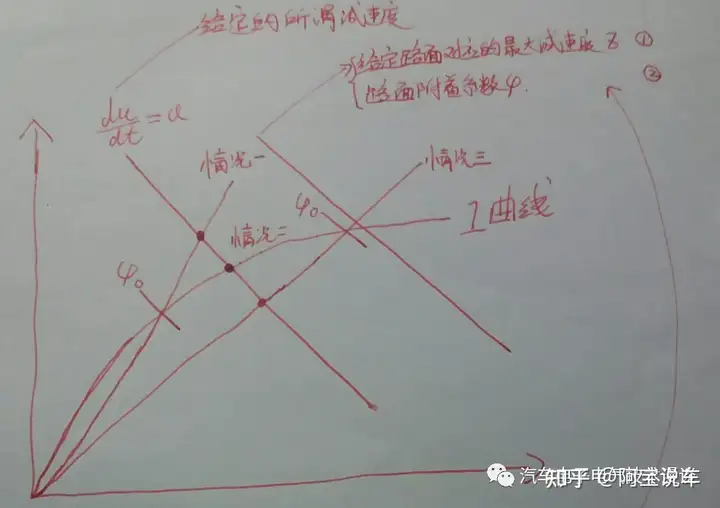 给定的所谓减速度
du/dt = a
给定路面对应的最大减速度 z ①
路面附着系数φ. ②
情况一
情况二
情况三
φ₀
φ₀
I曲线
知乎 @阿宝说车